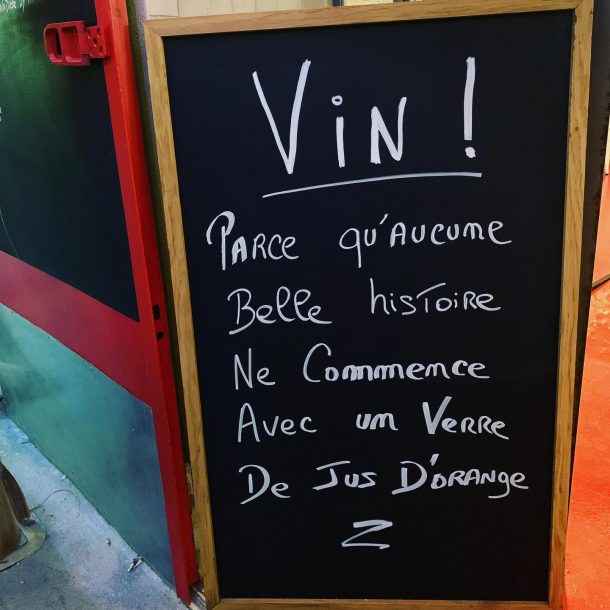 Vin !
Parce qu'aucune
Belle histoire
Ne Commence
Avec un Verre
De Jus D'orange
Z